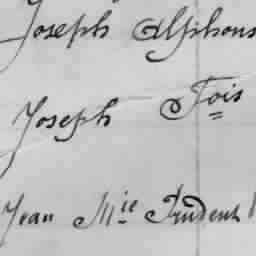 Joseph Alphons
Joseph Fois
Jean Mie Prudent